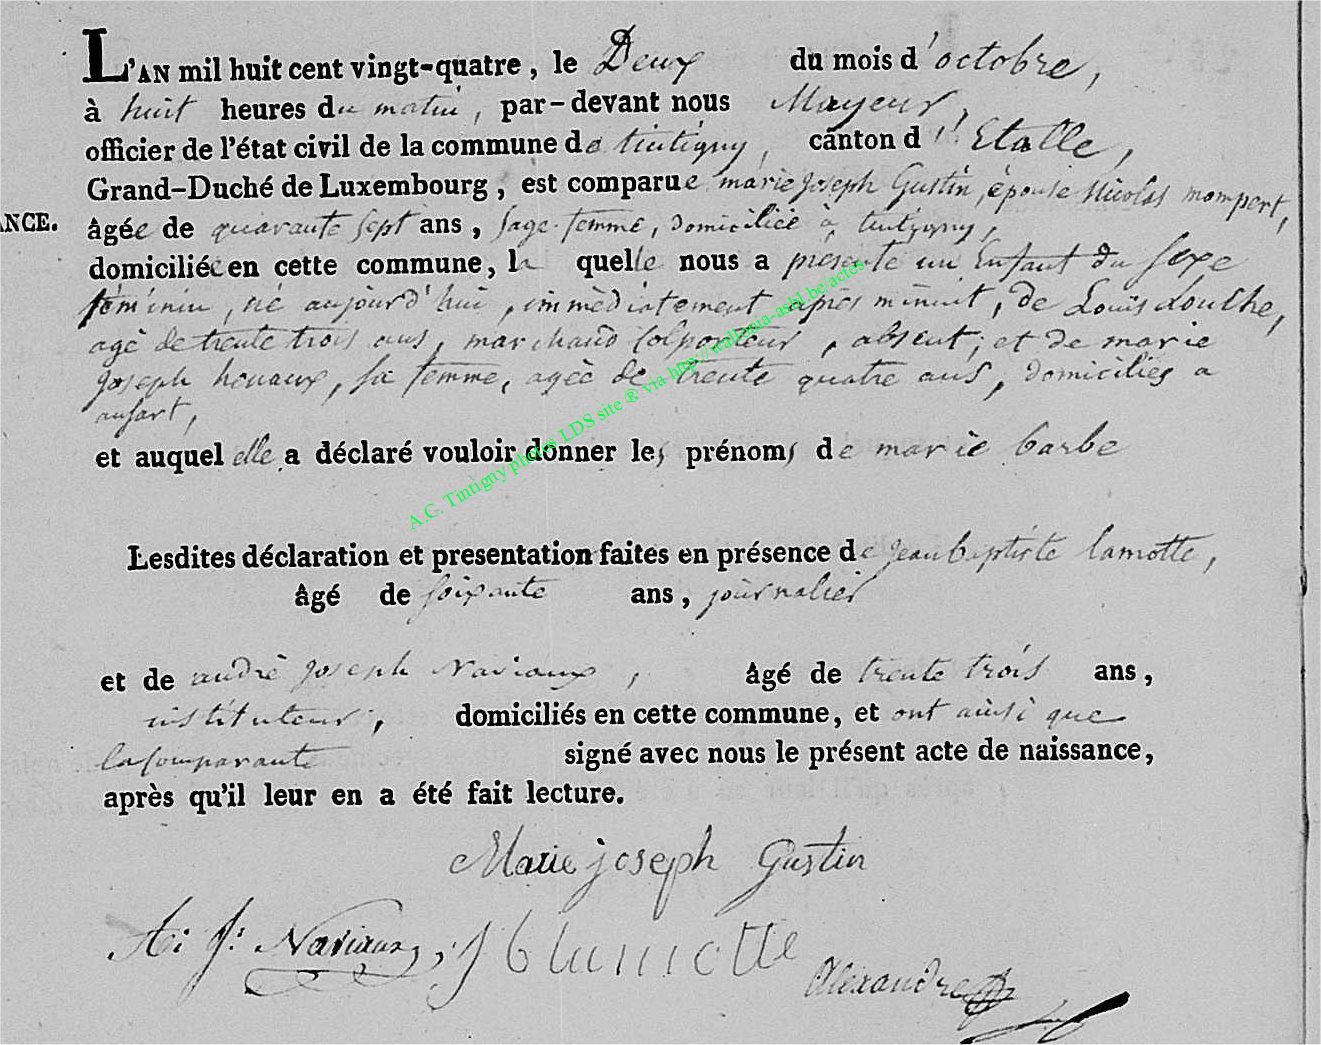 L'AN mil huit cent vingt-quatre, le Deux du mois d'octobre,
à huit heures du matin, par-devant nous Mayeur,
officier de l'état civil de la commune de tintigny, canton d'Etalle,
Grand-Duché de Luxembourg, est comparue marie joseph Gustin, épouse Nicolas mompert,
ANCE.
âgée de quarante sept ans, sage-femme, domiciliée à tintigny,
domiciliée en cette commune, la quelle nous a présenté un Enfant du sexe
féminin, né aujourd'hui, immédiatement après minuit, de Louis Louche,
agé de trente trois ans, marchand Colporteur, absent; et de marie
joseph henaux, sa femme, agée de trente quatre ans, domiciliés a
ansart,
et auquel elle a déclaré vouloir donner les prénoms de marie barbe
A.C. Tintigny photos LDS site ® via http://wallonia-asbl.be/actes
Lesdites déclaration et presentation faites en présence de jean baptiste lamotte,
âgé de soixante ans, journalier
et de andré joseph Naviaux, âgé de trente trois ans,
instituteur, domiciliés en cette commune, et ont ainsi que
la Comparante signé avec nous le présent acte de naissance,
après qu'il leur en a été fait lecture.
Marie joseph Gustin
A. J. Naviaux, J b lamotte
Alexandre